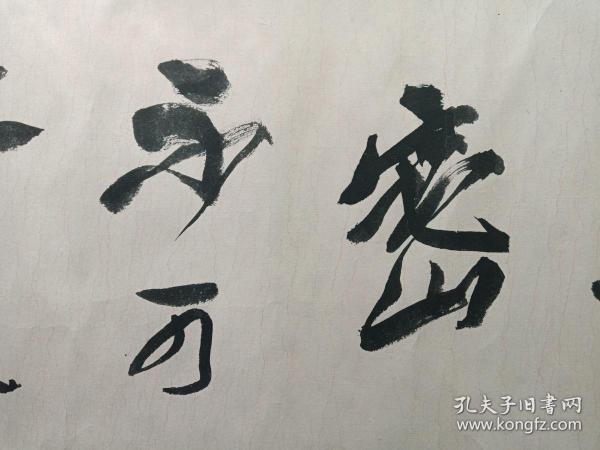 密
不可
孔夫子旧書网
www.kongfz.com